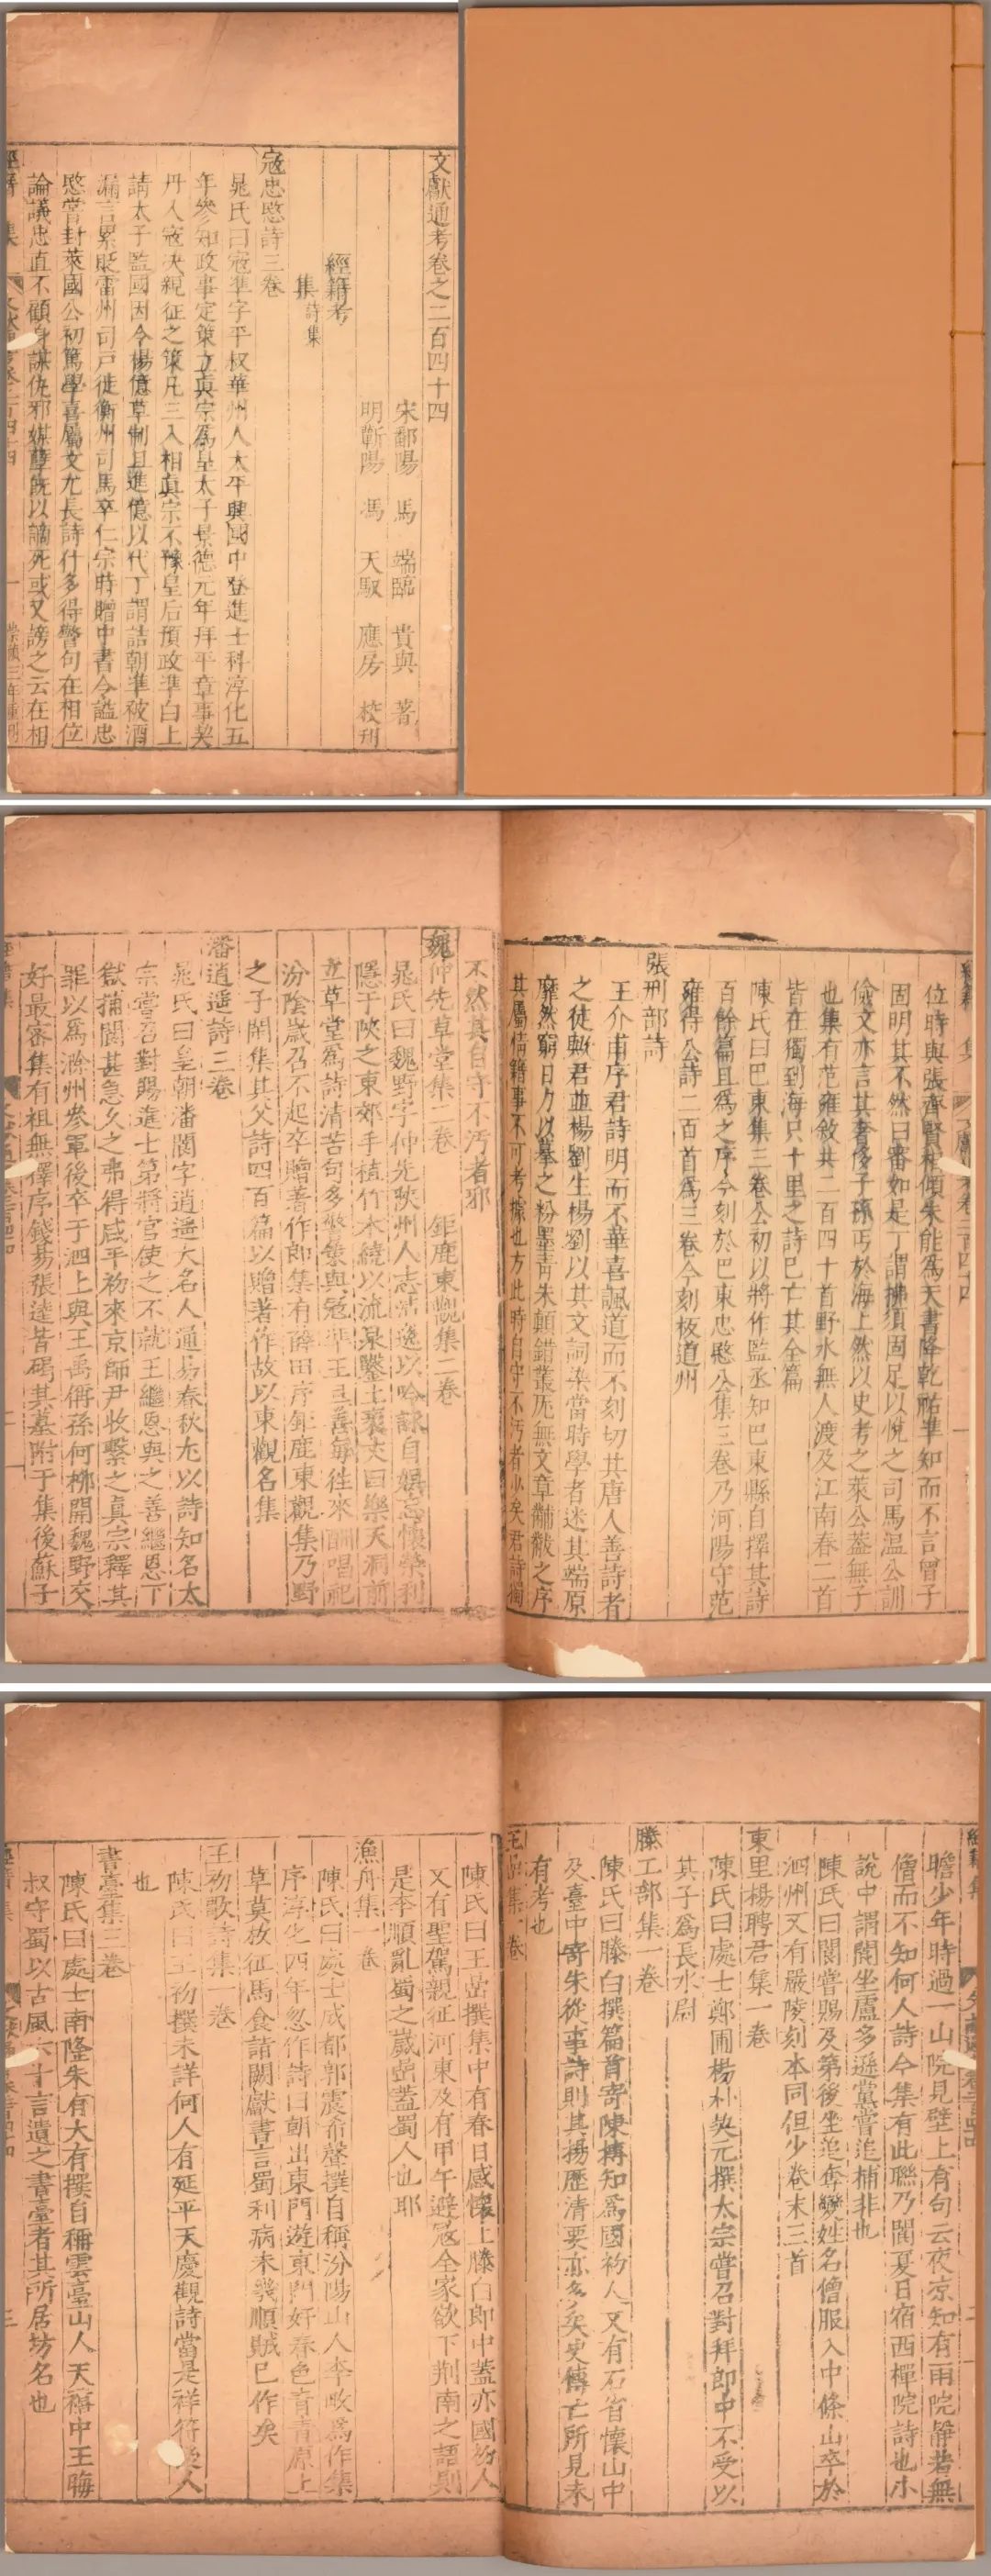 文獻通考卷之二百四十四
宋鄱陽 馬 端臨 貴與 著
明蘄陽 馮 天馭 應房 校刊
經籍考
集詩集
寇忠愍詩三卷
晁氏曰寇準字平叔華州人太平興國中登進士科淳化五
年參知政事定策立真宗爲皇太子景德元年拜平章事契
丹入寇决親征之策凡三入相真宗不豫皇后預政準白上
請太子監國因令楊億草制且進億以代丁謂詰朝準被酒
漏言累貶雷州司戶徙衡州司馬卒仁宗時贈中書令謚忠
愍嘗封萊國公初篤學喜屬文尤長詩什多得警句在相位
論議忠直不顧身謀仇邪媒孽既以謫死或又謗之云在相
位時與張齊賢相傾朱能爲天書降乾祐準知而不言曾子
固明其不然曰審如是丁謂拂須固足以悅之司馬温公訓
儉文亦言其奢侈子孫丐於海上然以史考之萊公蓋無子
也集有范雍敘共二百四十首野水無人渡及江南春二首
皆在獨到海只十里之詩已亡其全篇
陳氏曰巴東集三卷公初以將作監丞知巴東縣自擇其詩
百餘篇且爲之序今刻於巴東忠愍公集三卷乃河陽守范
雍得公詩二百首爲三卷今刻板道州
張刑部詩
王介甫序君詩明而不華喜諷道而不刻切其唐人善詩者
之徒歟君並楊劉生楊劉以其文詞染當時學者迷其端原
靡然窮日力以摹之粉墨青朱顛錯叢厖無文章黼黻之序
其屬情籍事不可考據也方此時自守不汚者少矣君詩獨
不然其自守不汚者邪
魏仲先草堂集二卷 鉅鹿東觀集二卷
晁氏曰魏野字仲先陜州人志清逸以吟詠自娛忘懷榮利
隱于陜之東郊手植竹木繞以流泉鑿土袤丈曰樂天洞前
立草堂爲詩清苦句多警䇿與寇準王旦善每往來酬唱祀
汾陰歲召不起卒贈著作郎集有薛田序鉅鹿東觀集乃野
之子閑集其父詩四百篇以贈著作故以東觀名集
潘逍遥詩三卷
晁氏曰皇朝潘閬字逍遥大名人通易春秋尤以詩知名太
宗嘗召對賜進士第將官使之不就王繼恩與之善繼恩下
獄捕閬甚急久之弗得咸平初來京師尹收繫之真宗釋其
罪以爲滁州參軍後卒于泗上與王禹偁孫何柳開魏野交
好最密集有祖無擇序錢易張逵皆碣其墓附于集後蘇子
瞻少年時過一山院見壁上有句云夜凉知有雨院靜若無
僧而不知何人詩今集有此聯乃閬夏日宿西禪院詩也小
說中謂閬坐盧多遜黨嘗追捕非也
陳氏曰閬嘗賜及第後坐追奪變姓名僧服入中條山卒於
泗州又有嚴陵刻本同但少卷末三首
東里楊聘君集一卷
陳氏曰處士鄭圃楊朴契元撰太宗嘗召對拜郎中不受以
其子爲長水尉
滕工部集一卷
陳氏曰滕白撰篇首寄陳摶知爲國初人又有石省懷山中
及臺中寄朱從事詩則其揚歷清要亦多矣史傳亡所見未
有考也
王嵒集一卷
陳氏曰王嵒撰集中有春日感懷上滕白郎中蓋亦國初人
又有聖駕親征河東及有甲午避寇全家欲下荆南之語則
是李順亂蜀之歲嵒蓋蜀人也耶
漁舟集一卷
陳氏曰處士成都郭震希聲撰自稱汾陽山人李畋爲作集
序淳化四年忽作詩曰朝出東門遊東門好春色青青原上
草莫放征馬食詣闕獻書言蜀利病未幾順賊已作矣
王初歌詩集一卷
陳氏曰王初撰未詳何人有延平天慶觀詩當是祥符後人
也
書臺集三卷
陳氏曰處士南隆朱有大有撰自稱雲臺山人天禧中王晦
叔守蜀以古風六十言遺之書臺者其所居坊名也